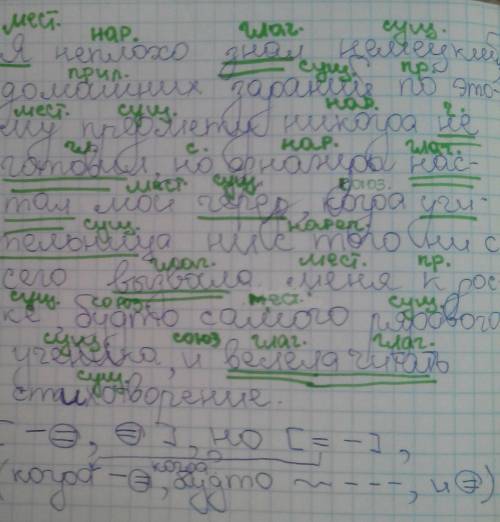 мест. нар. глаг. сущ.
Я неплохо знал немецкий
прил. сущ. пр.
домашних заданий по это-
мест. сущ. нар. ч.
му предмету никогда не
гл. с. нар. глаг.
готовил, но однажды нас-
мест. сущ. союз.
тал мой черёд, когда учи-
сущ. нареч.
тельница ни с того ни с
глаг. мест. пр.
сего вызвала меня к дос
сущ. союз. мест. сущ.
ке будто самого рядового
сущ. союз глаг. глаг.
ученика, и велела читать
сущ.
стихотворение.
[ - =, = ], но [ = - ],
когда
(когда - =, будто ~ ---, и = )